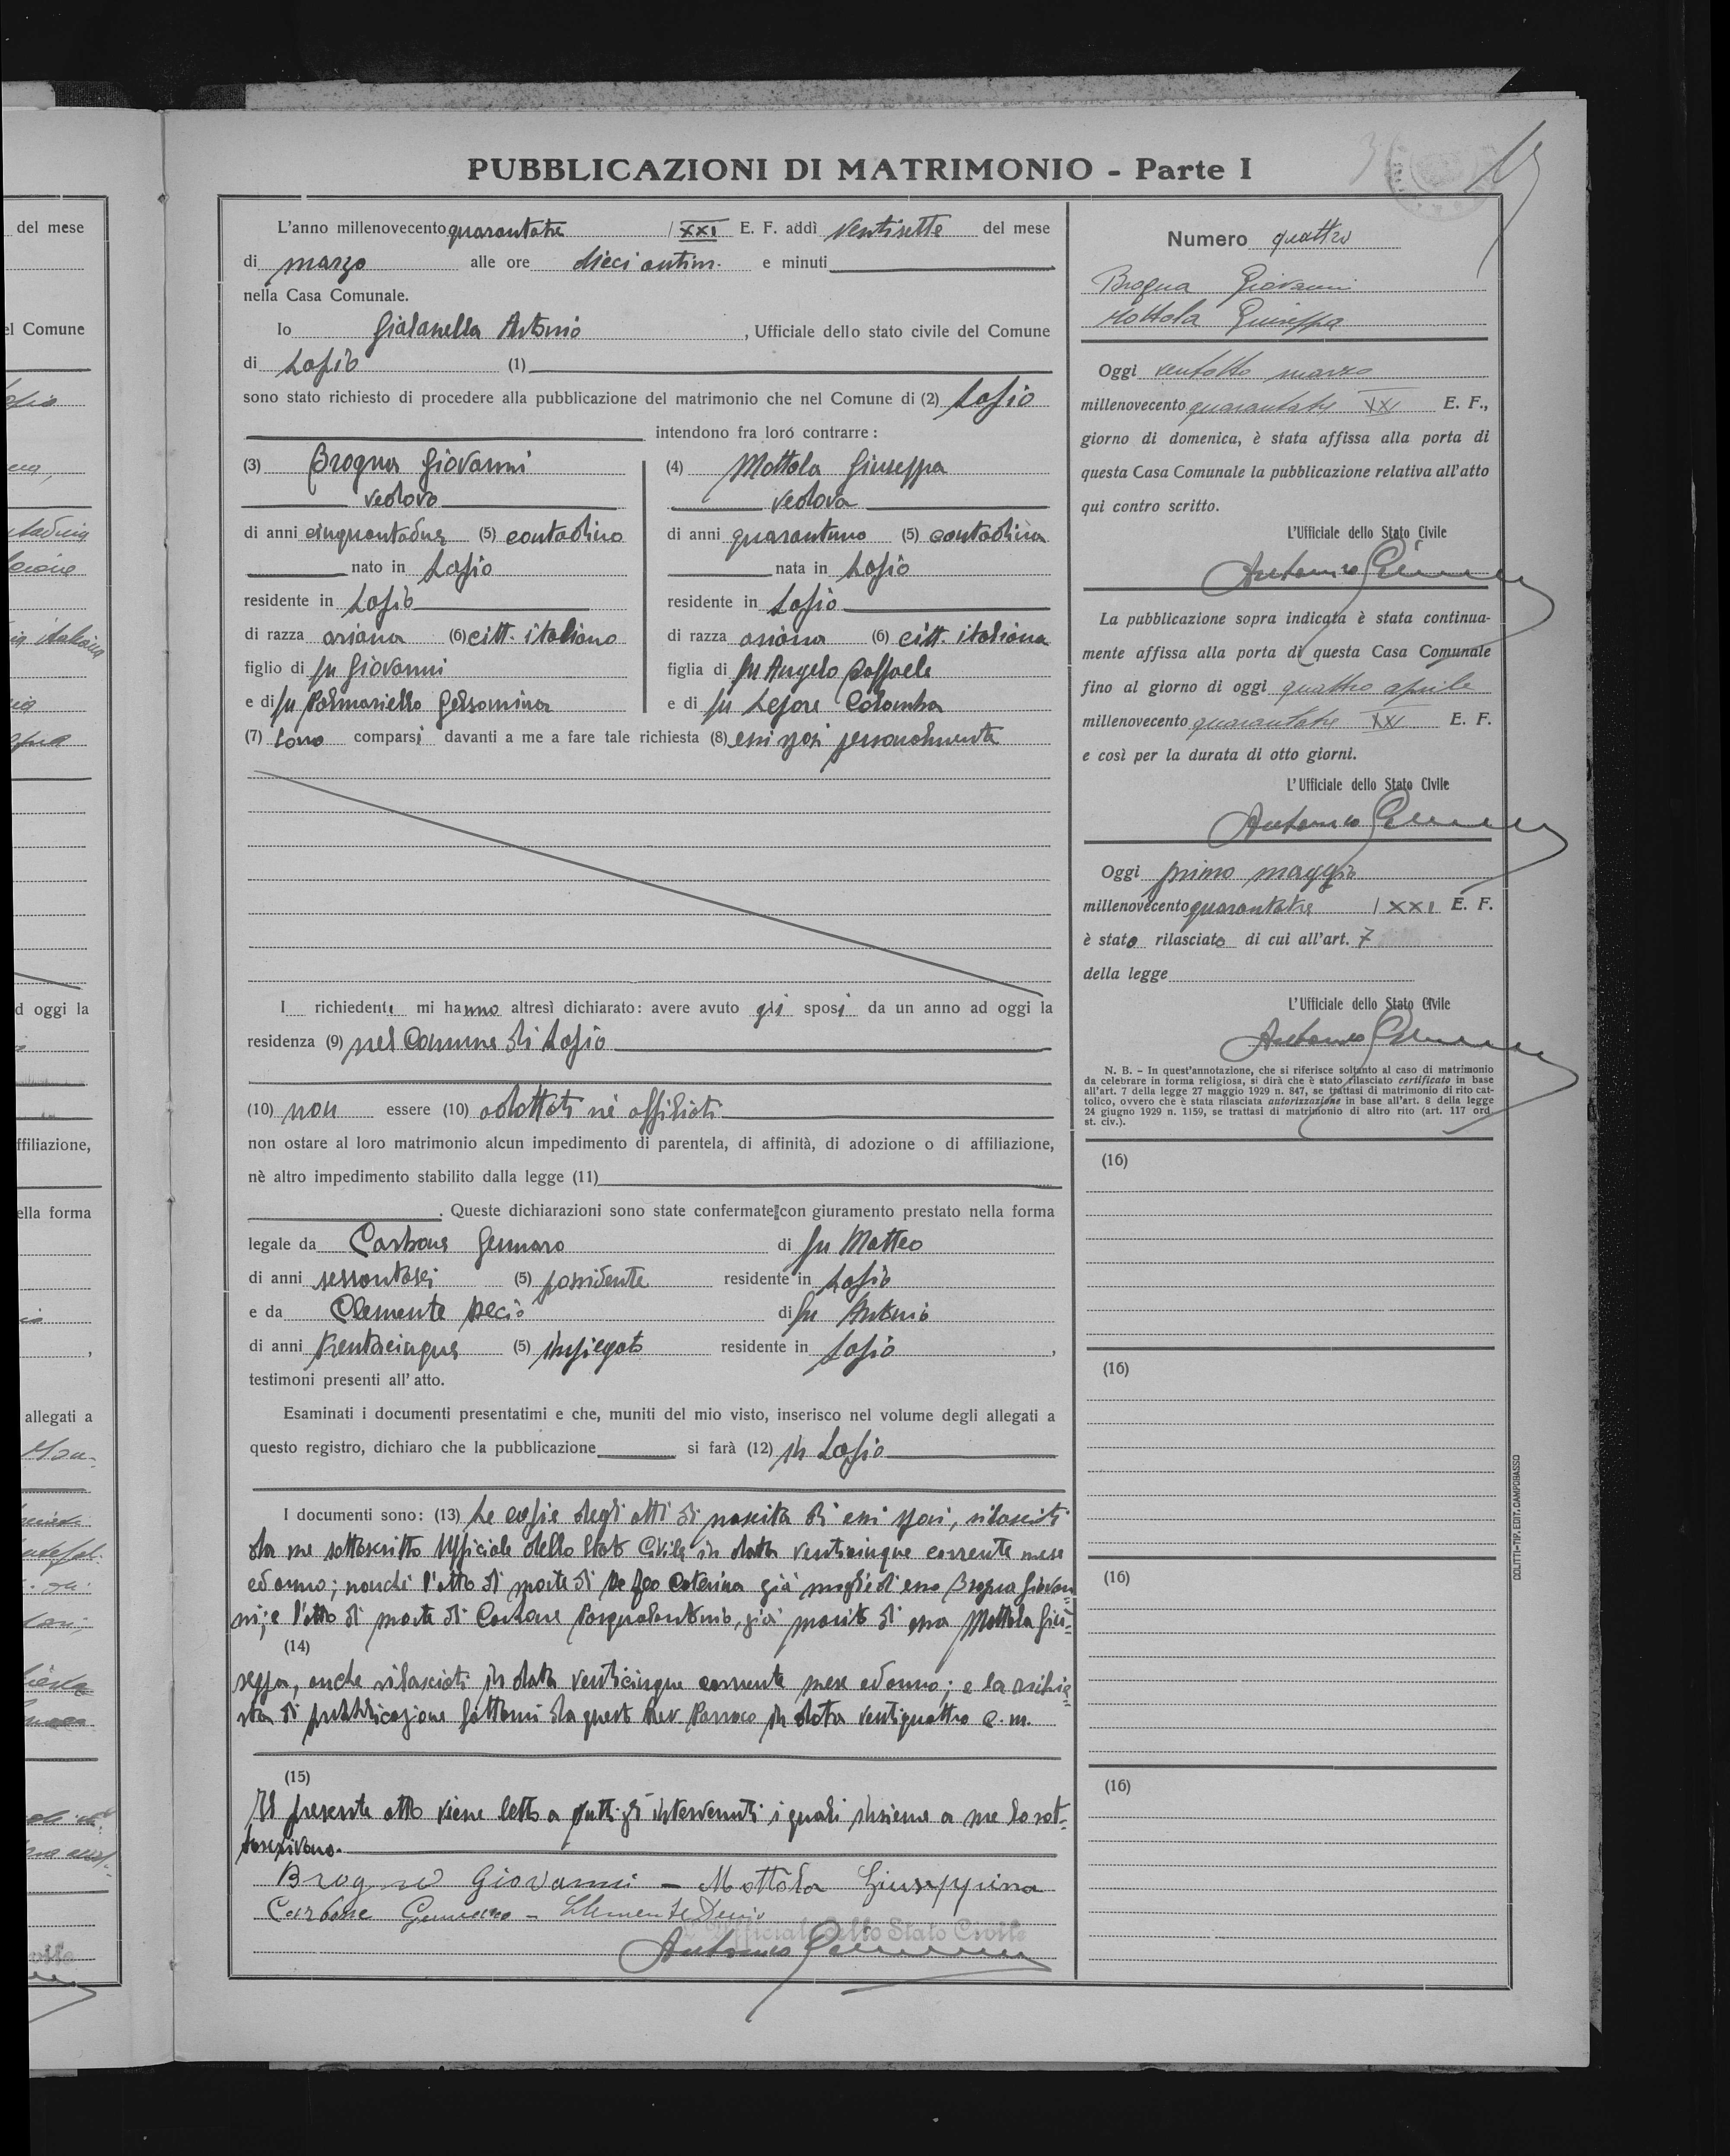 PUBBLICAZIONI DI MATRIMONIO - Parte I
L'anno millenovecento quarantatre / XXI E. F. addì ventisette del mese
di marzo alle ore dieci antim. e minuti
nella Casa Comunale.
Io Gialanella Antonio, Ufficiale dello stato civile del Comune
di Lapio (1)
sono stato richiesto di procedere alla pubblicazione del matrimonio che nel Comune di (2) Lapio
intendono fra loro contrarre:
(3) Brogna Giovanni
vedovo
di anni cinquantadue (5) contadino
nato in Lapio
residente in Lapio
di razza ariana (6) citt. italiano
figlio di fu Giovanni
e di fu Palmariello Gelsomina
(4) Mottola Giuseppa
vedova
di anni quarantuno (5) contadina
nata in Lapio
residente in Lapio
di razza ariana (6) citt. italiana
figlia di fu Angelo Raffaele
e di fu Lepore Colomba
(7) sono comparsi davanti a me a fare tale richiesta (8) essi sposi personalmente
I richiedenti mi hanno altresì dichiarato: avere avuto gli sposi da un anno ad oggi la
residenza (9) nel Comune di Lapio
(10) non essere (10) adottati nè affiliati
non ostare al loro matrimonio alcun impedimento di parentela, di affinità, di adozione o di affiliazione,
nè altro impedimento stabilito dalla legge (11)
. Queste dichiarazioni sono state confermate con giuramento prestato nella forma
legale da Carbone Gennaro di fu Matteo
di anni sessantasei (5) possidente residente in Lapio
e da Clemente Decio di fu Antonio
di anni trentacinque (5) impiegato residente in Lapio,
testimoni presenti all'atto.
Esaminati i documenti presentatimi e che, muniti del mio visto, inserisco nel volume degli allegati a
questo registro, dichiaro che la pubblicazione si farà (12) in Lapio
I documenti sono: (13) Le copie degli atti di nascita di essi sposi, rilasciati
da me sottoscritto Ufficiale dello Stato Civile in data venticinque corrente mese
ed anno; nonché l'atto di morte di De Feo Caterina già moglie di esso Brogna Giovan=
ni; e l'atto di morte di Carbone Pasqualantonio, già marito di essa Mottola Giu=
(14)
seppa, anche rilasciati in data venticinque corrente mese ed anno; e la richie=
sta di pubblicazione fattami da questo Rev. Parroco in data ventiquattro c.m.
(15)
Il presente atto viene letto a tutti gli intervenuti i quali insieme a me lo sot=
toscrivono.
Brogna Giovanni - Mottola Giuseppina
Carbone Gennaro - Clemente Decio
L'Ufficiale dello Stato Civile
Numero quattro
Brogna Giovanni
Mottola Giuseppa
Oggi ventotto marzo
millenovecento quarantatre XXI E. F.,
giorno di domenica, è stata affissa alla porta di
questa Casa Comunale la pubblicazione relativa all'atto
qui contro scritto.
L'Ufficiale dello Stato Civile
La pubblicazione sopra indicata è stata continua-
mente affissa alla porta di questa Casa Comunale
fino al giorno di oggi quattro aprile
millenovecento quarantatre XXI E. F.
e così per la durata di otto giorni.
L'Ufficiale dello Stato Civile
Oggi primo maggio
millenovecento quarantatre / XXI E. F.
è stato rilasciato di cui all'art. 7
della legge
L'Ufficiale dello Stato Civile
N. B. - In quest'annotazione, che si riferisce soltanto al caso di matrimonio
da celebrare in forma religiosa, si dirà che è stato rilasciato certificato in base
all'art. 7 della legge 27 maggio 1929 n. 847, se trattasi di matrimonio di rito cat-
tolico, ovvero che è stata rilasciata autorizzazione in base all'art. 8 della legge
24 giugno 1929 n. 1159, se trattasi di matrimonio di altro rito (art. 117 ord.
st. civ.).
(16)
(16)
(16)
(16)
COLITTI-TIP. EDIT. CAMPOBASSO
del mese
el Comune
d oggi la
ffiliazione,
ella forma
allegati a